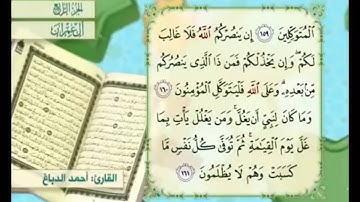 الجزء الرابع
آل عمران
ٱلْمُتَوَكِّلِينَ ١٥٩ إِن يَنصُرْكُمُ ٱللَّهُ فَلَا غَالِبَ
لَكُمْ ۖ وَإِن يَخْذُلْكُمْ فَمَن ذَا ٱلَّذِى يَنصُرُكُم
مِّنۢ بَعْدِهِۦ ۗ وَعَلَى ٱللَّهِ فَلْيَتَوَكَّلِ ٱلْمُؤْمِنُونَ ١٦٠
وَمَا كَانَ لِنَبِىٍّ أَن يَغُلَّ ۚ وَمَن يَغْلُلْ يَأْتِ بِمَا
غَلَّ يَوْمَ ٱلْقِيَـٰمَةِ ۚ ثُمَّ تُوَفَّىٰ كُلُّ نَفْسٍ مَّا
كَسَبَتْ وَهُمْ لَا يُظْلَمُونَ ١٦١
القارئ: أحمد الدباغ